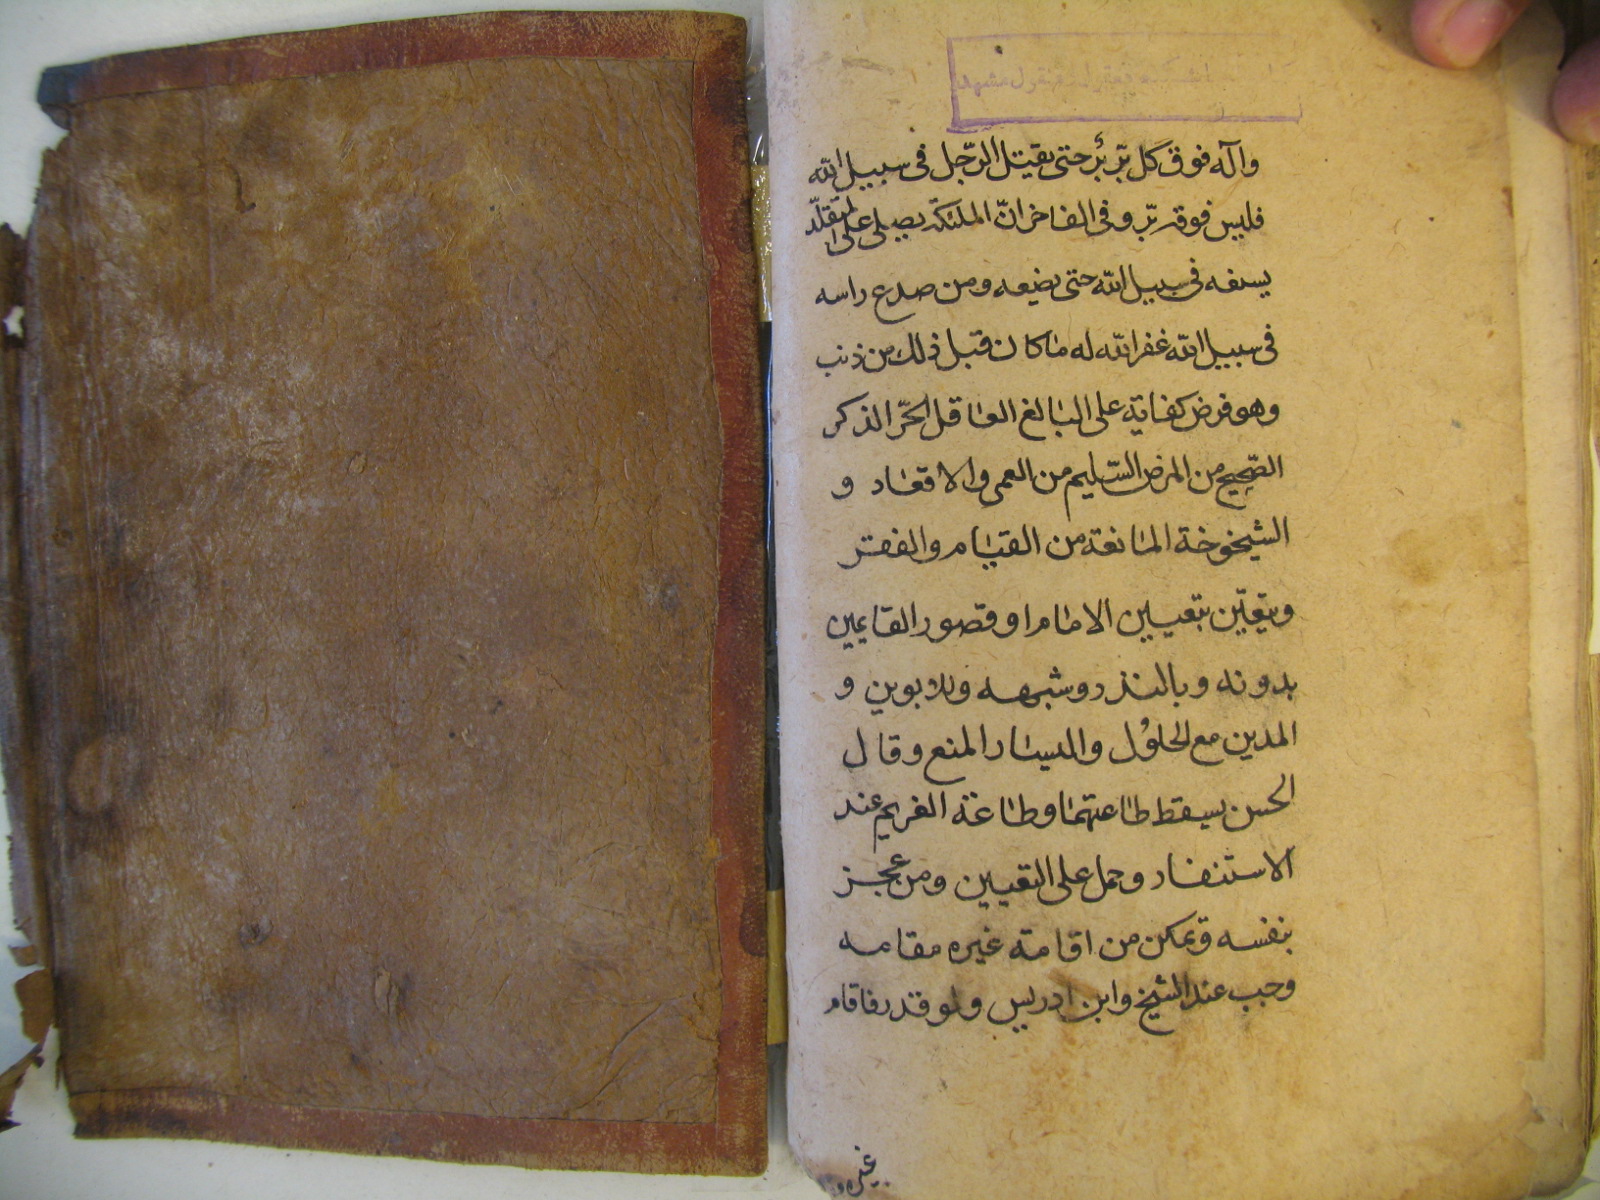 وآله فوق كل برّ برّ حتى يقتل الرّجل فى سبيل الله
فليس فوقه برّ وفى الفاخر انّ الملئكة يصلى على المتقلّد
بسيفه فى سبيل الله حتى يضعه ومن صدع راسه
فى سبيل الله غفر الله له ما كان قبل ذلك من ذنب
وهو فرض كفاية على البالغ العاقل الحرّ الذكر
الصّحيح من المرض السّليم من العمى والاقعاد و
الشيخوخة المانعة من القيام والفقر
ويتعيّن بتعيين الامام او قصور القايمين
بدونه وبالنذر وشبهه وللابوين و
المدين مع الحلول واليسار المنع وقال
الحسن يسقط طاعتهما وطاعة الغريم عند
الاستنفار وحمل على التعيين ومن عجز
بنفسه وتمكن من اقامة غيره مقامه
وجب عند الشيخ وابن ادريس ولو قدر فاقام
غيره